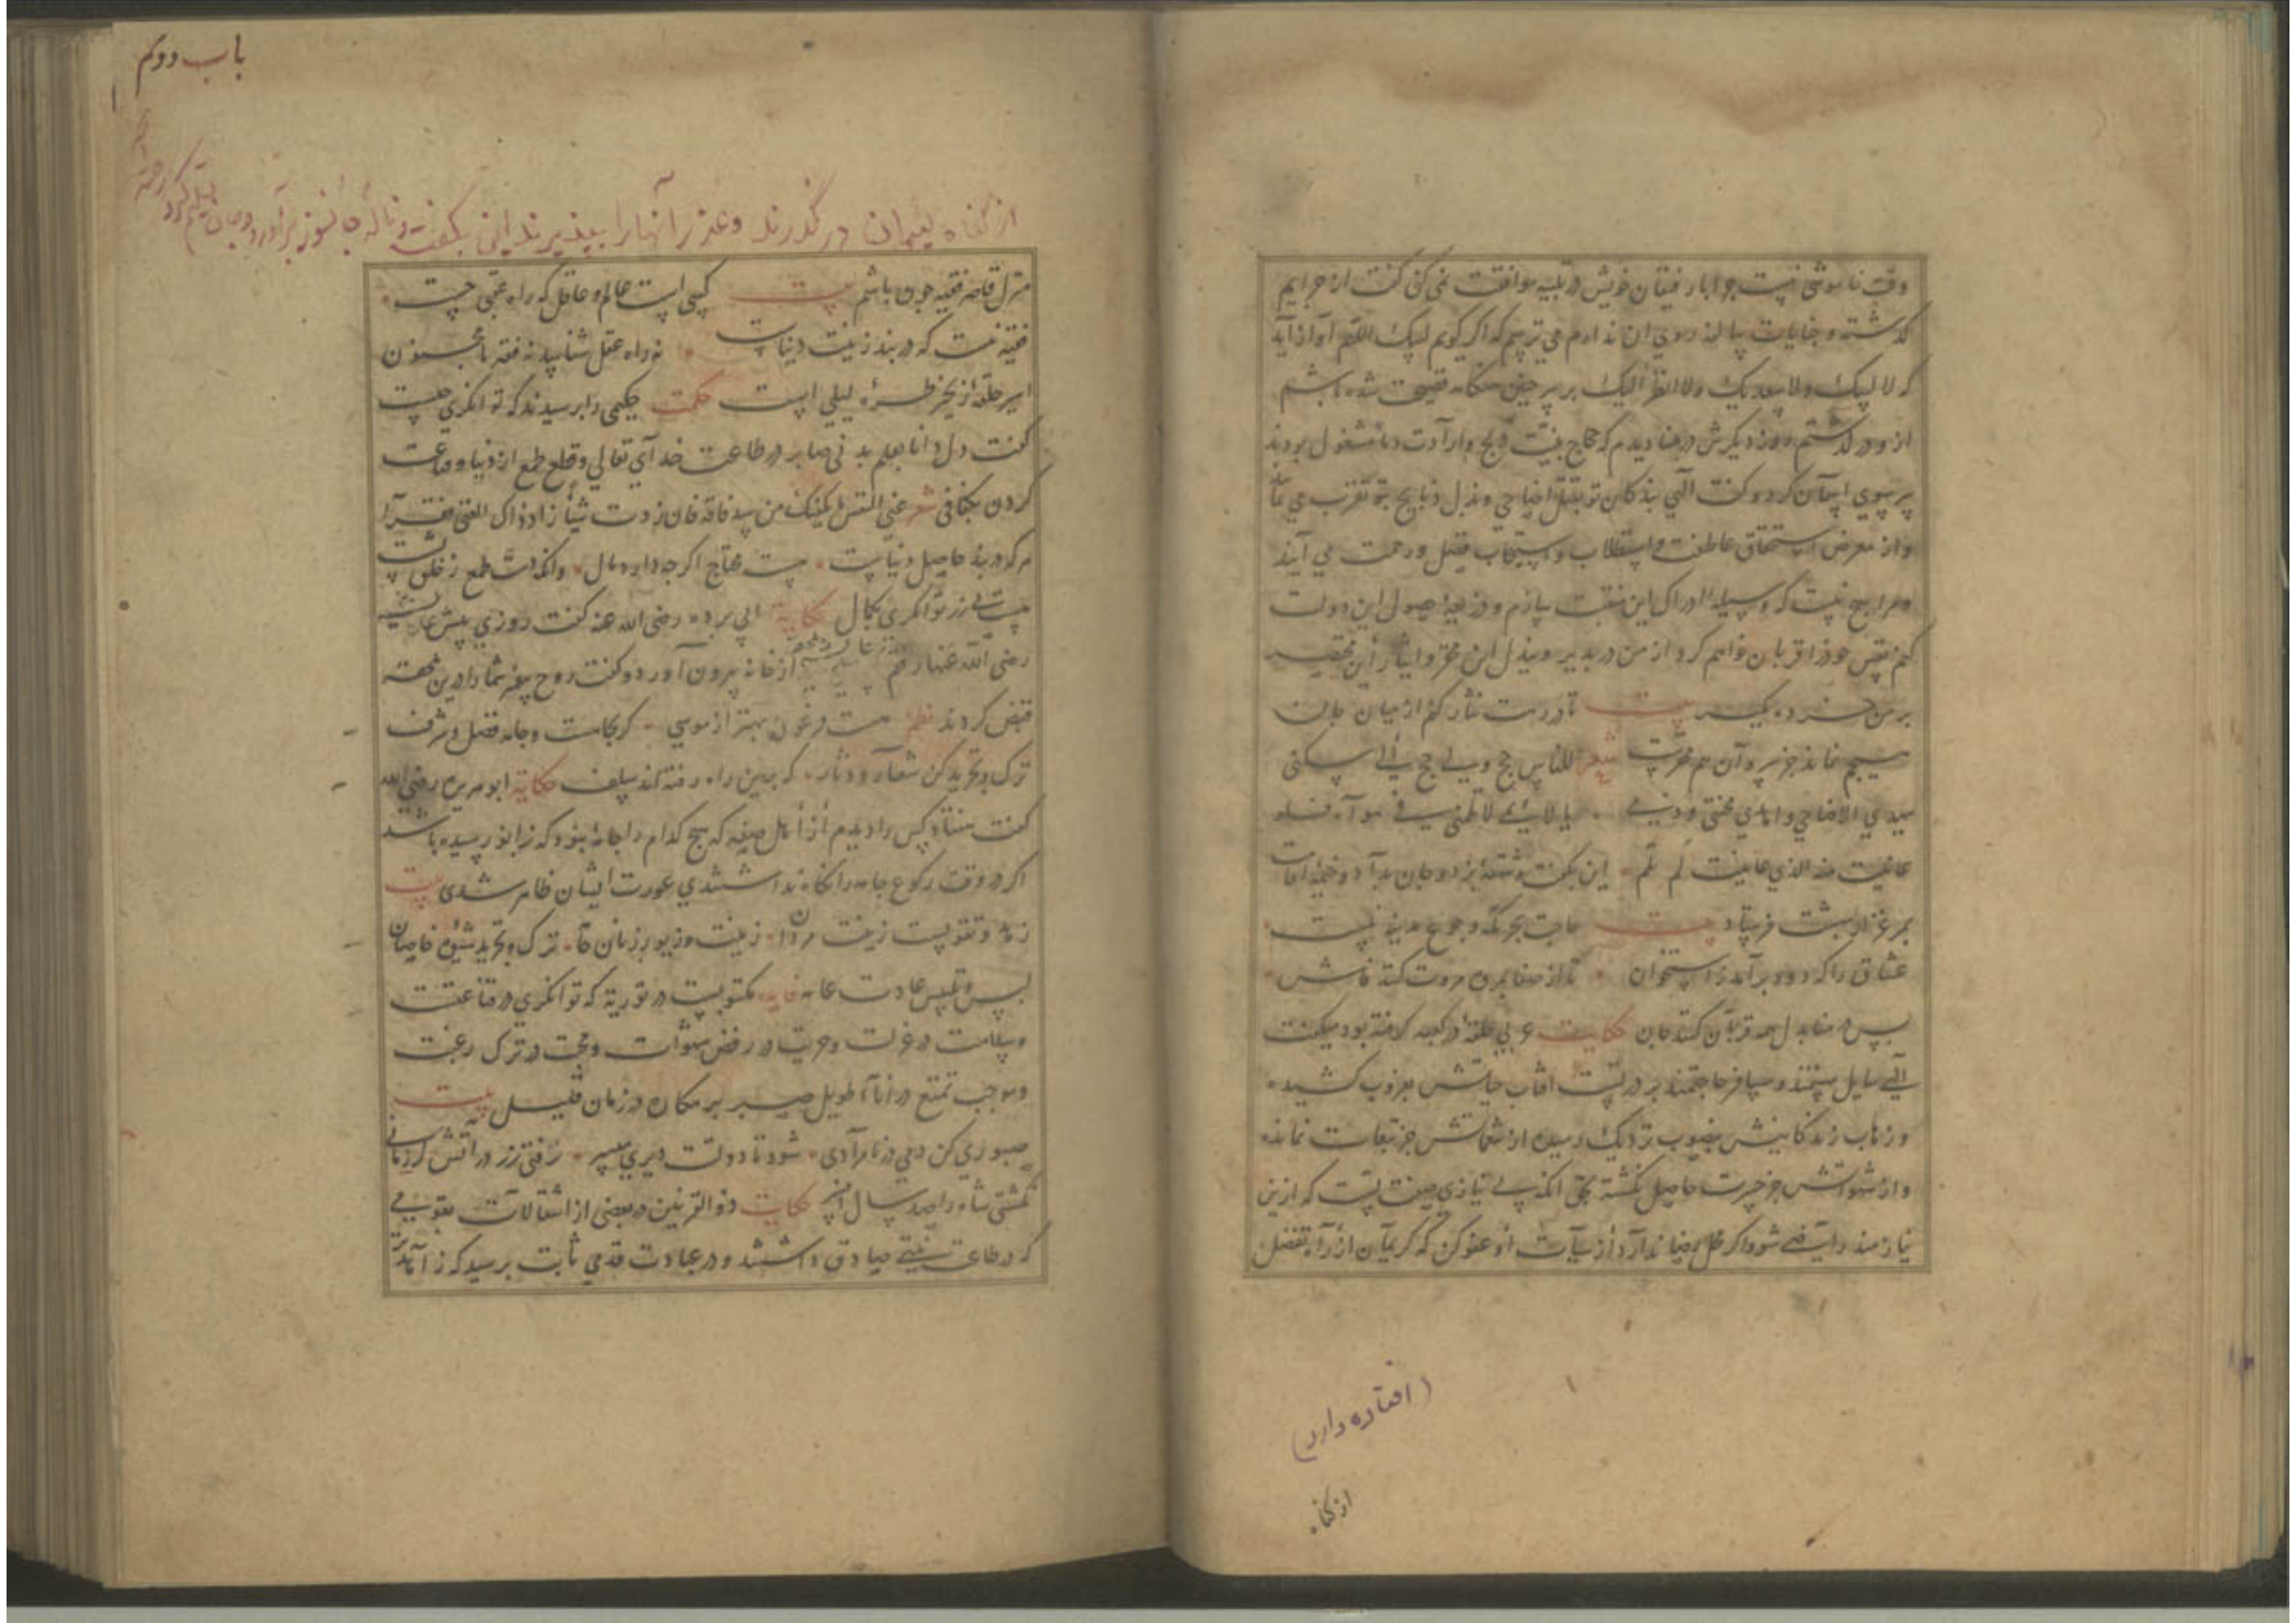 وقت خاموشی نیست چرا با رفیقان خویش در تلبیه موافقت نمی کنی گفت از جرایم
گذشته و جنایات سالفه روی آن ندارم می ترسم که اگر گویم لبیک اللهم آواز آید
که لا لبیک ولا سعدیک ولا انظر الیک بر سر چنین هنگامه فضیحت شده باشم
از و در گذشتم روز دیگرش در منا دیدم که حجاج بنیت ذبح و ارادت دما مشغول بودند
سر سوی آسمان کرد و گفت الهی بندگان تو بنقل اضاحی و بذل ذبایح بتو تقرب می نمایند
و از معرض استحقاق عاطفت و استجلاب و استیجاب فضل و رحمت می آیند
و مرا هیچ نیست که وسیله ادراک این منقبت سازم و ذریعه حصول این دولت
کنم نفس خود را قربان خواهم کرد از من در پذیر و بذل این محقر و ایثار این مختصر
بر من خرده مگیر بیت تا در رهت نثار کنم از میان جان
هیچم نماند جز سر و آن هم محقرست شعر للناس حج ولی حج الی سکنی
یهدی الاضاحی واهدی مهجتی ودمی یا لائمی لا تلمنی فی هواه فلو
عاینت منه الذی عاینت لم تلم این بگفت و شهقه بزد و جان بداد و خیمه اقامت
بمرغزار بهشت فرستاد بیت حاجت بحرمگه و رجوع مدینه نیست
عشاق را که دود برآمد ز استخوان تا از صفا بمروه مروت کنند فاش
پس در منا بدل همه قربان کنند جان حکایت عربی حلقه در کعبه گرفته بود میگفت
الهی سایل مستمند و مسافر حاجتمند بر در تست آفتاب حیاتش بغروب کشیده
و ذهاب زندگانیش بغیوب نزدیک رسیده از تنعماتش جز تبعات نمانده
و از شهواتش جز حسرت حاصل نگشته بحق آنکه بی نیازی صفت تست که ازین
نیازمند راضی شو و اگر محل رضا ندارد از سیآت او عفو کن که کریمان از راه تفضل
(افتاده دارد)
از گناه
باب دوم
از گناه لئیمان در گذرند و عذر آنها را بپذیرند این بگفت و ناله جانسوز برآورد و جان تسلیم کرد رحمه
منزل قاصر فقیه چون باشم بیت کسی است عالم و عاقل که راه عقبی جست
فقیه نیست که در بند زینت دنیاست نه راه عقل شناسد نه فقه تا مجنون
اسیر حلقه زنجیر طره لیلی است حکمت حکیمی را پرسیدند که توانگری چیست
گفت دل دانا بعلم بدنی صابر در طاعت خدای تعالی و قلع طمع از دنیا و قناعت
کردن بکفافی شعر غنی النفس یکفیک من سد فاقة فان زدت شیأ زاد ذاک الغنی فقرا
هرکه در بند حاصل دنیاست هست محتاج اگرچه دارد مال وانکه دست طمع ز خلق بشست
هست بی زر توانگری بکمال حکایة ابی برده رضی الله عنه گفت روزی پیش عایشه
رضی الله عنها رفتم از خانه بیرون آورد و گفت روح پیغمبر شما را درین جامه
قبض کردند نظم نیست فرعون بهتر از موسی گر بجامست و جامه فضل و شرف
ترک و تجرید کن شعار و دثار که برین راه رفته اند سلف حکایة ابو هریره رضی الله
گفت هفتاد کس را دیدم از اهل صفه که هیچ کدام را جامه نبود که زانو رسیده باشد
اگر در وقت رکوع جامه را نگاه نداشتندی عورت ایشان ظاهر شدی بیت
زهد و تقویست زینت مردان زینت و زیور زنان قبا ترک و تجرید شیوه خاصان
لبس و تلبیس عادت عامه فایده مکتوبست در توریة که توانگری در قناعتست
و سلامت در عزلت و حریت در رفض شهوات و محبت در ترک رغبت
و موجب تمتع در اناء طویل صبر بر مکاره در زمان قلیل بیت
صبوری کن دمی در نامرادی شود تا دولت دیری میسر نرفتی زر در آتش گر زمانی
نگشتی شاه را صد سال افسر حکایت ذوالقرنین در بعضی از انتقالات بقومی
که در طاعت نیتی صادق داشتند و در عبادت قدمی ثابت برسید که ز آمد